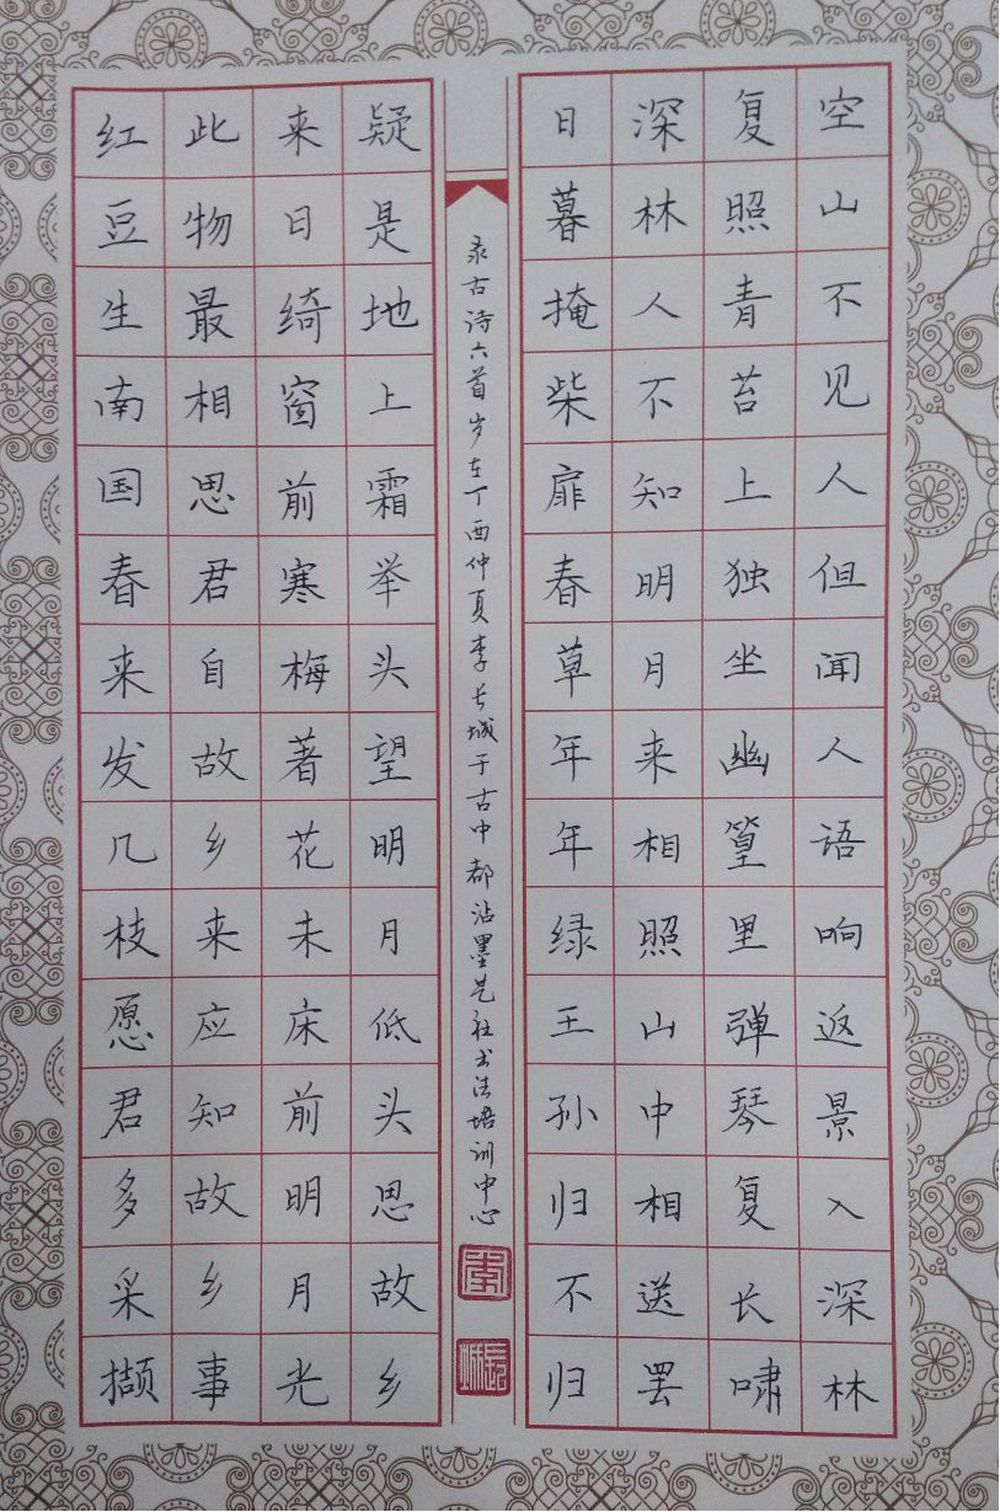 空山不见人但闻人语响返景入深林
复照青苔上独坐幽篁里弹琴复长啸
深林人不知明月来相照山中相送罢
日暮掩柴扉春草年年绿王孙归不归
红豆生南国春来发几枝愿君多采撷
此物最相思君自故乡来应知故乡事
来日绮窗前寒梅著花未床前明月光
疑是地上霜举头望明月低头思故乡
录古诗六首岁在丁酉仲夏李长城于古中都沾墨艺社书法培训中心
李
长城